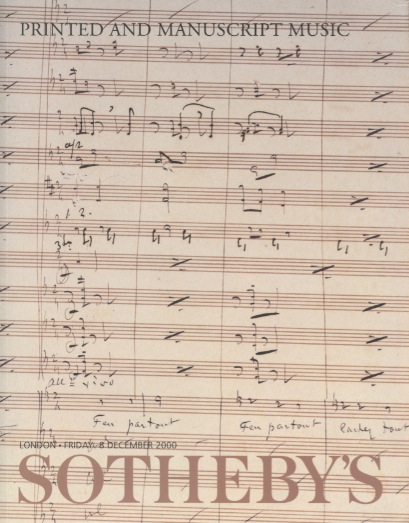 PRINTED AND MANUSCRIPT MUSIC
a/2
1. 2.
Feu partout Feu partout
LONDON • FRIDAY 8 DECEMBER 2000
SOTHEBY'S